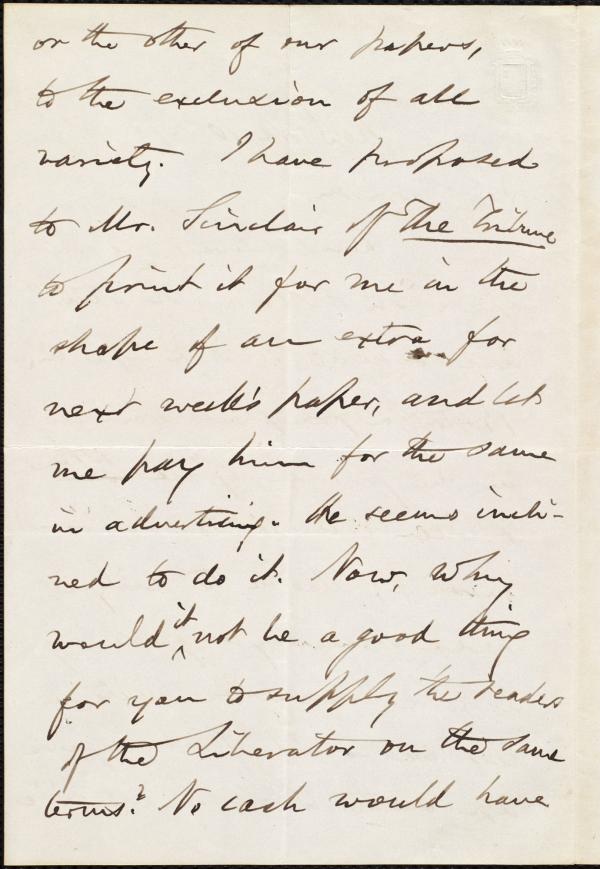 or the other of our papers,
to the exclusion of all
variety. I have proposed
to Mr. Sinclair of The Tribune
to print it for me in the
shape of an extra for
next week's paper, and let
me pay him for the same
in advertising. He seems incli-
ned to do it. Now, why
would it not be a good thing
for you to supply the readers
of the Liberator on the same
terms? No cash would have